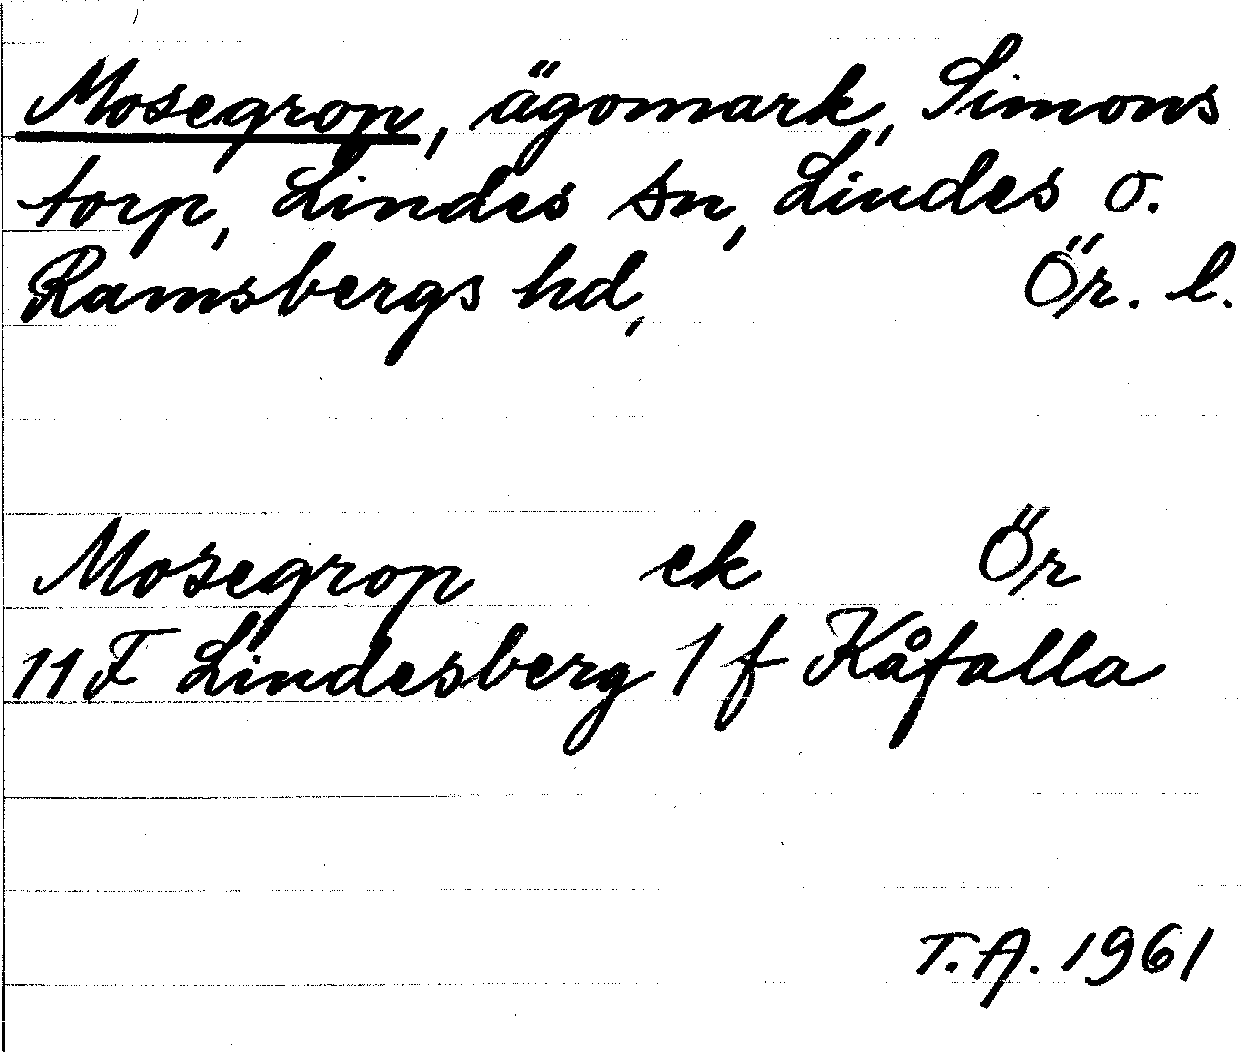 Mosegrop, ägomark, Simons
torp, Lindes sn, Lindes o.
Ramsbergs hd, Ör. l.
Mosegrop ek Ör
11 F Lindesberg 1 f Kåfalla
T.A. 1961